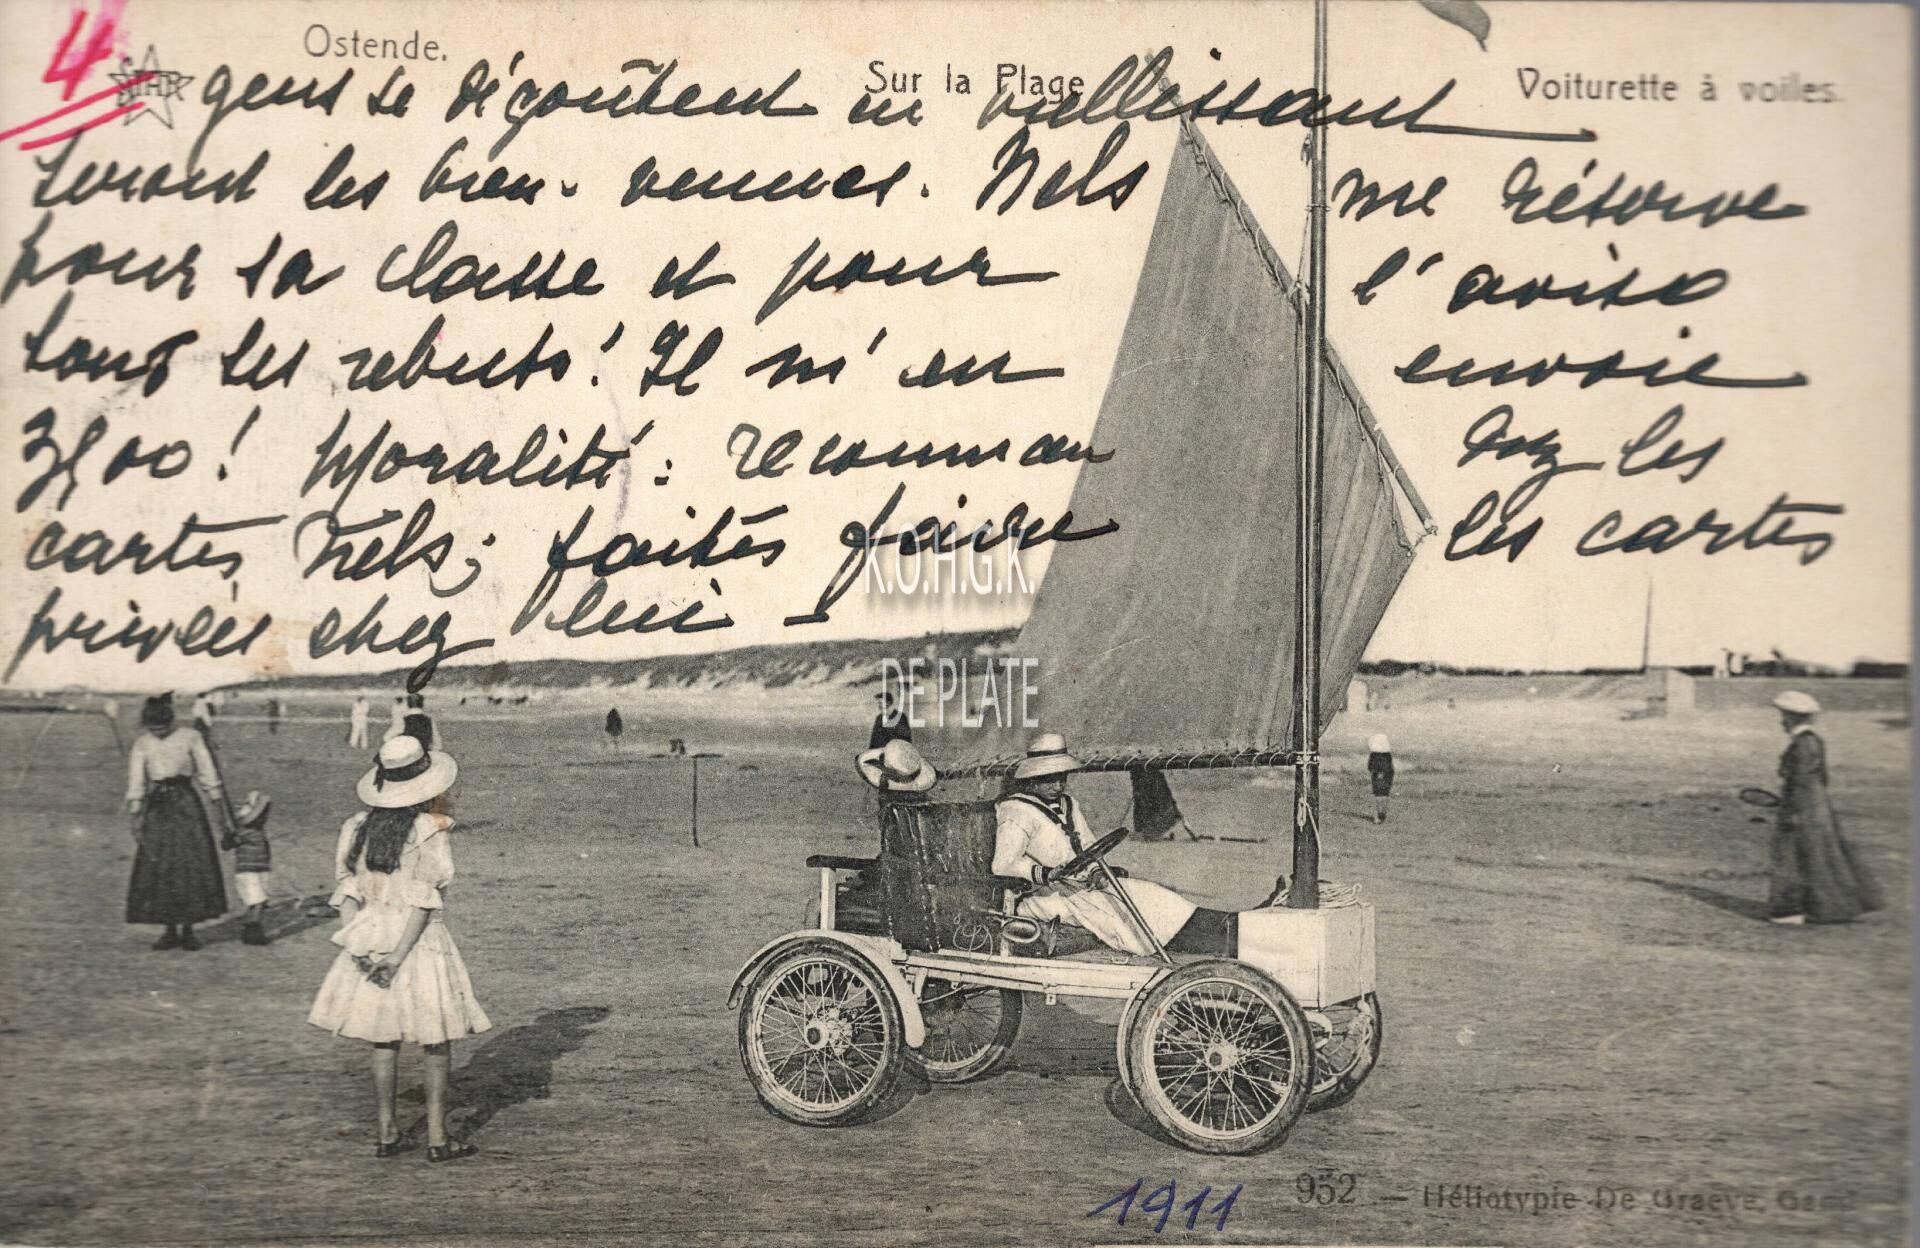 4
STAR
Ostende.
Sur la Plage
Voiturette à voiles.
gens se dégoûtent en vieillissant
seront les bien-venues. Nels me réserve
pour sa classe et pour l'aviso
tous ses rebuts! Il m'en envoie
3500! Moralité: recommandez les
cartes Nels; faites faire les cartes
privées chez lui -
K.O.H.G.K.
DE PLATE
1911
952 - Héliotypie De Graeve, Gand